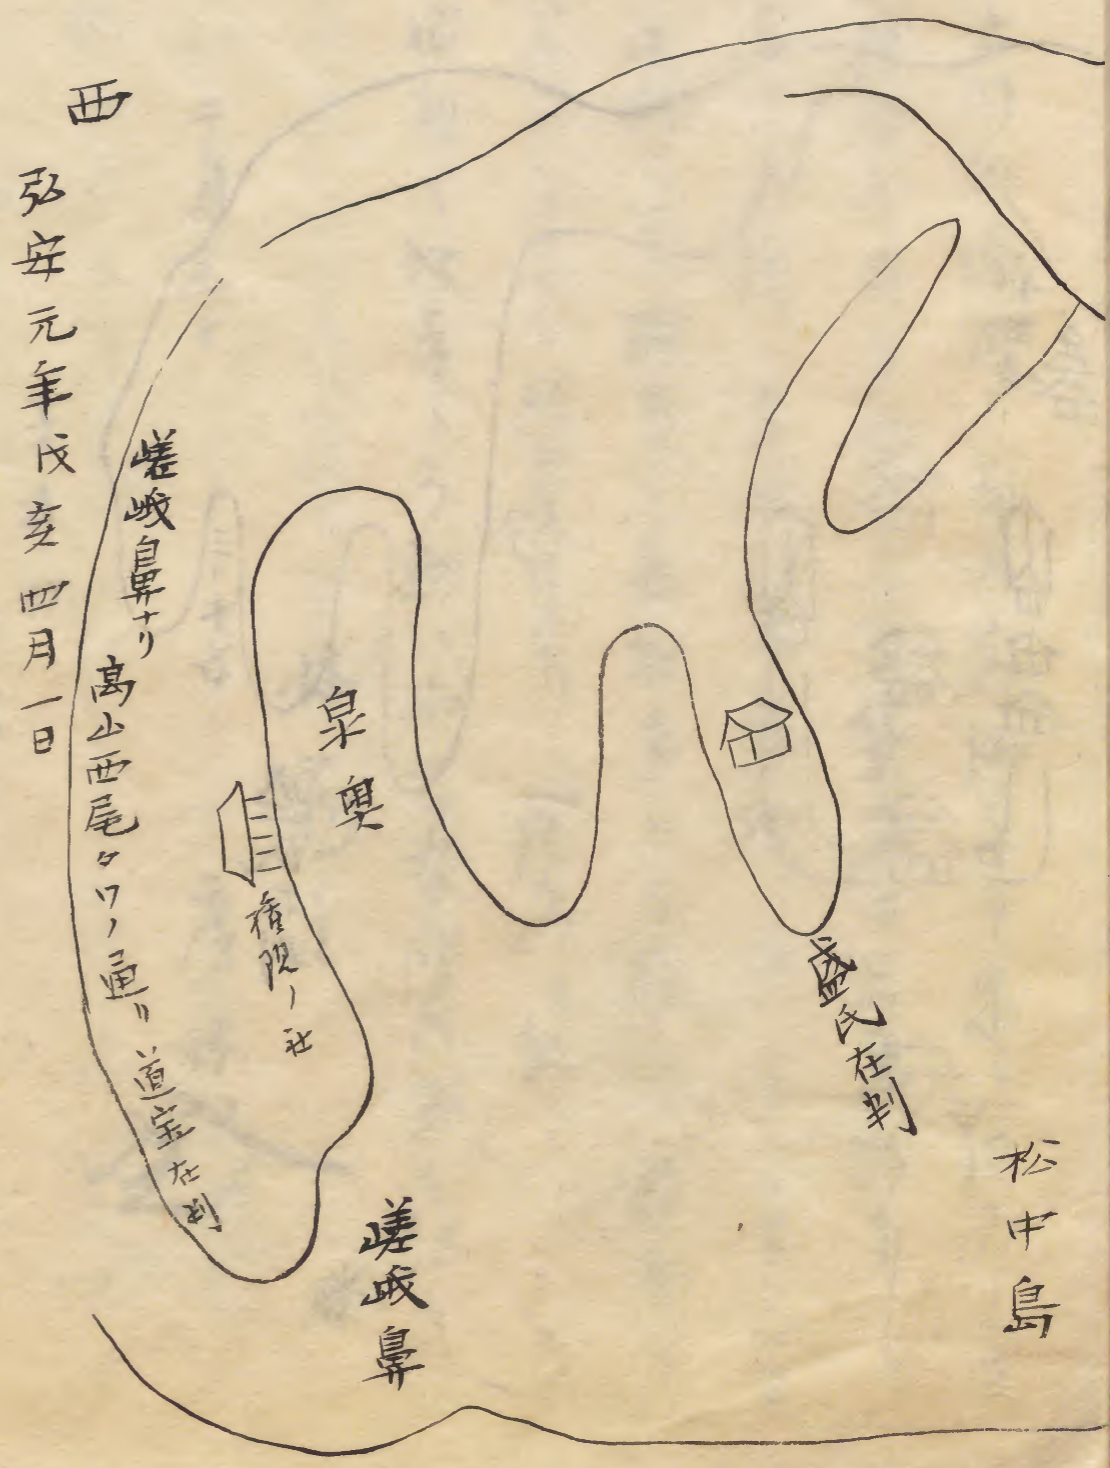 松中島
盛氏在判
嵯峨鼻
泉奥
権現ノ社
嵯峨鼻ナリ
高山西尾タワノ通リ道宝在判
西
弘安元年戊亥四月一日